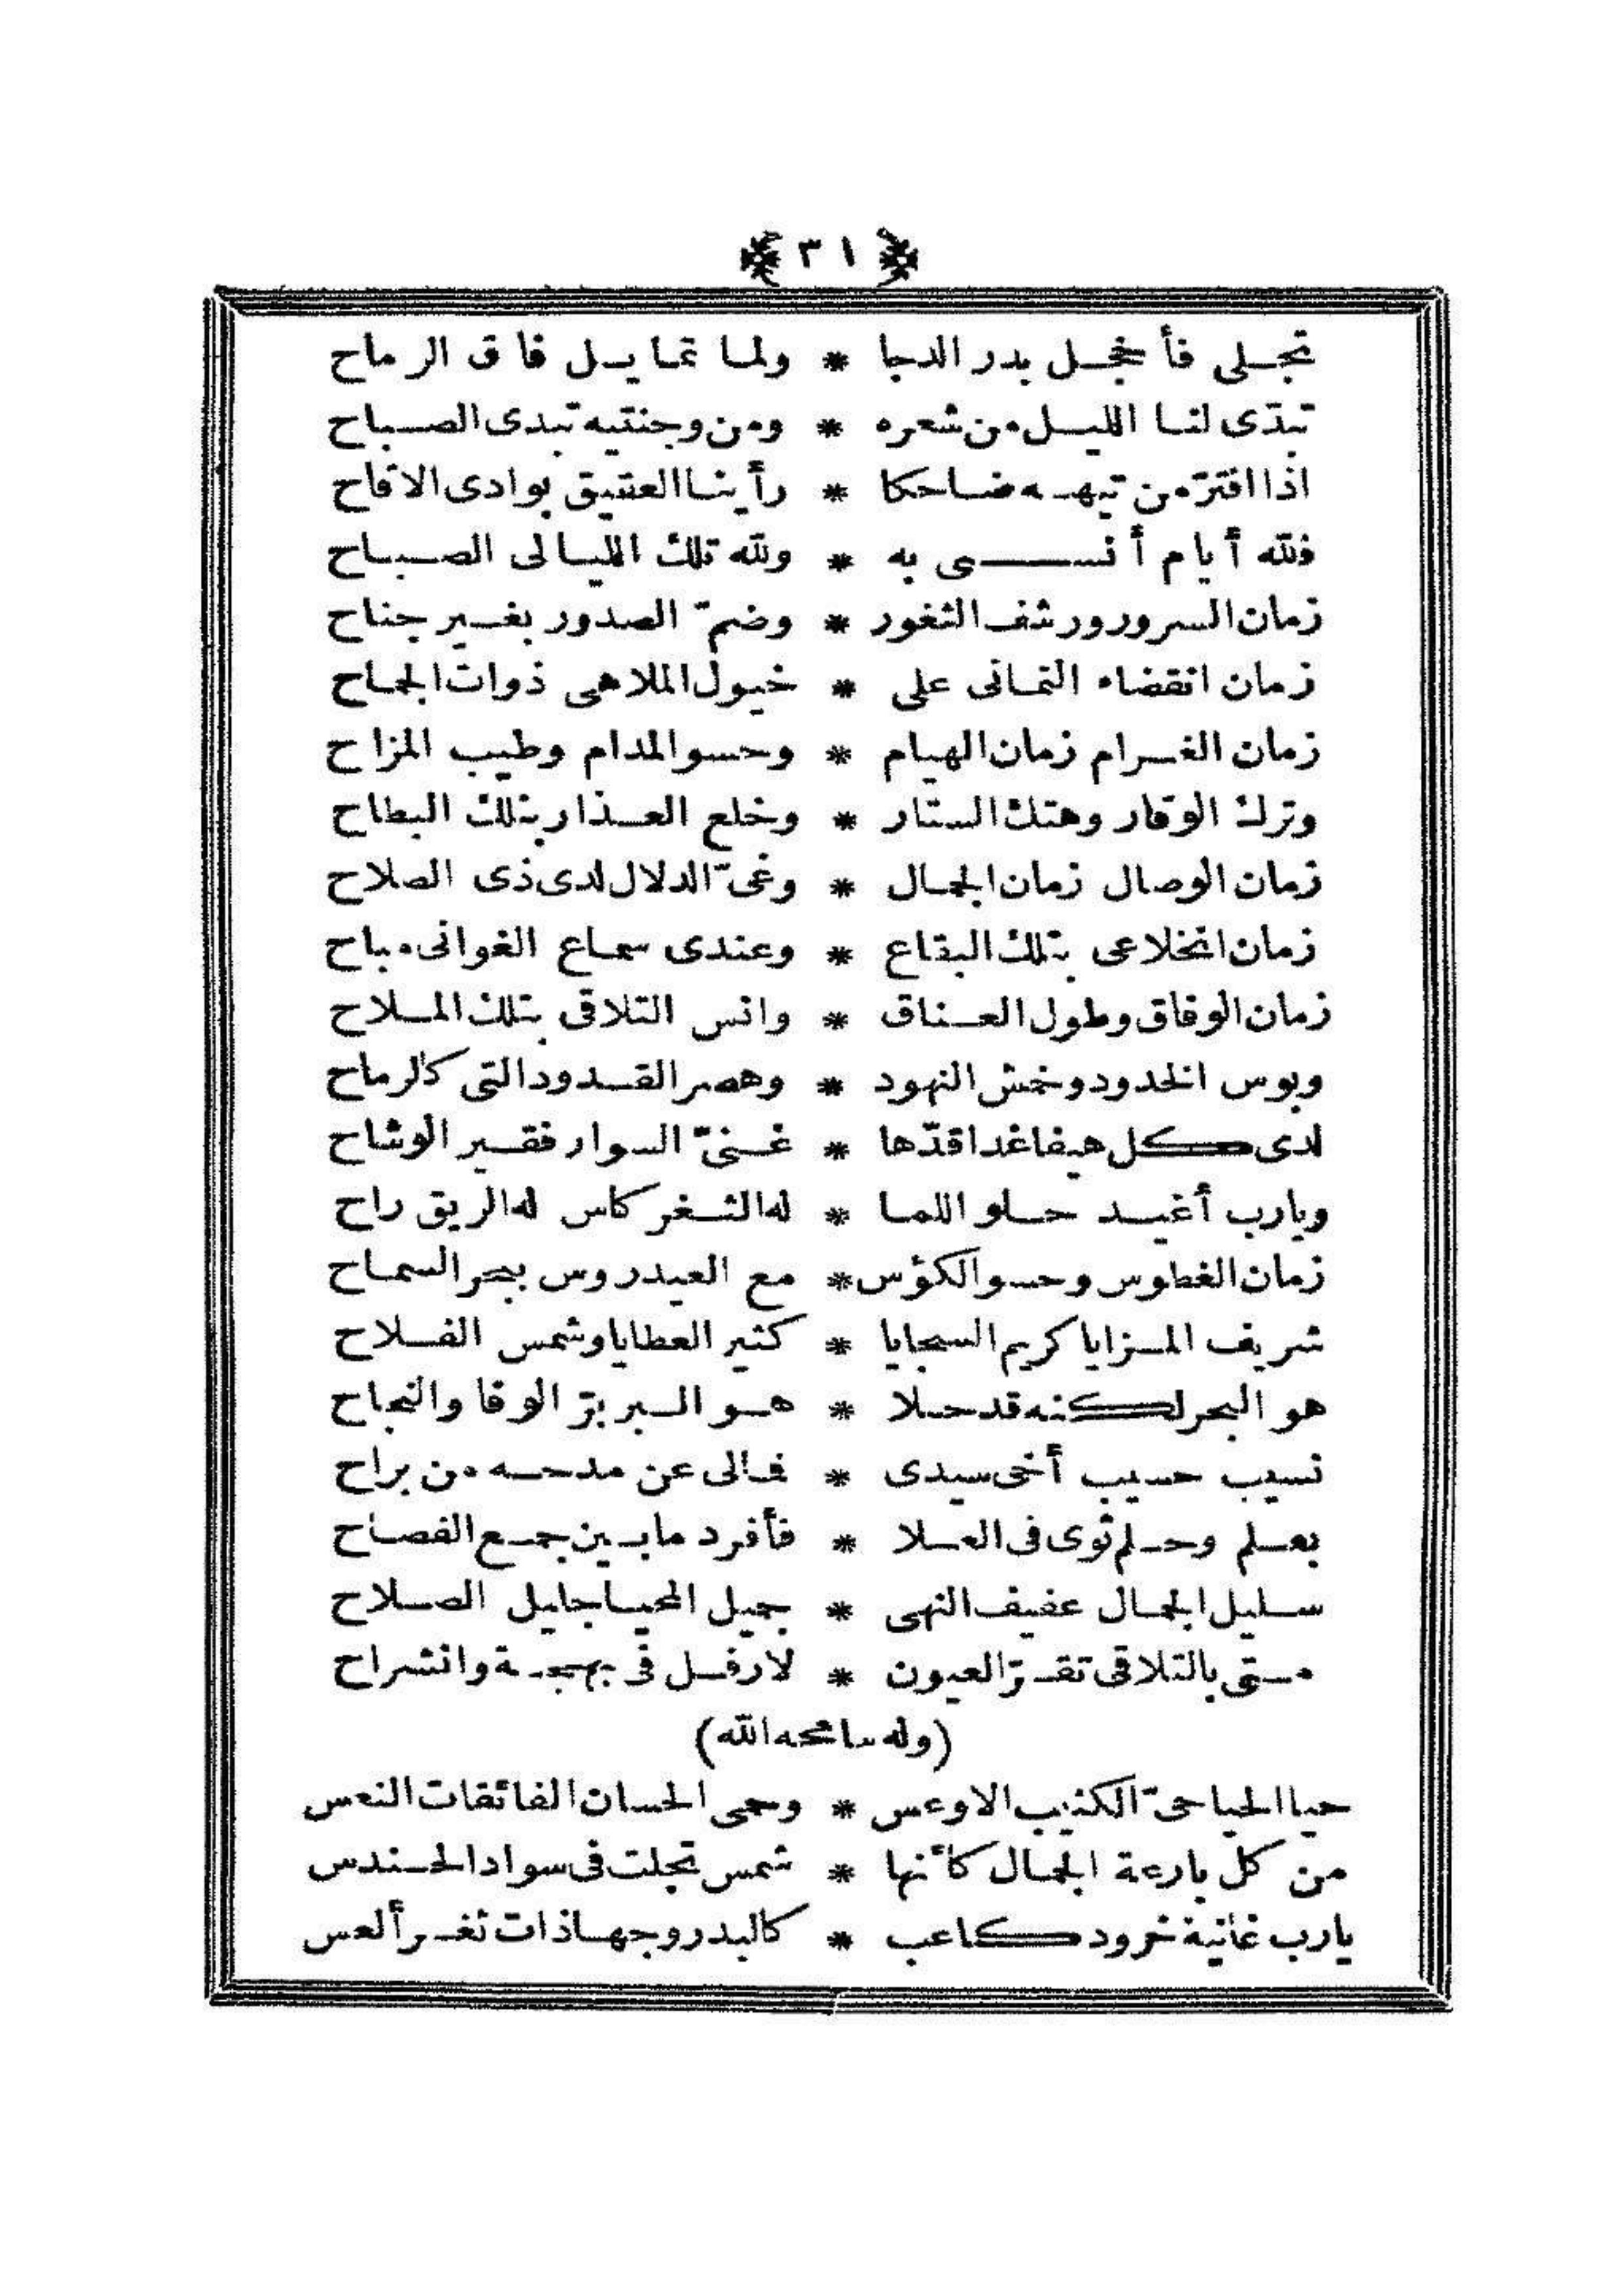 ٣١
تجلى فأخجل بدر الدجا * ولما تمايل فاق الرماح
تبدّى لنا الليل من شعره * ومن وجنتيه تبدى الصباح
اذا افترّ من تيهه ضاحكا * رأينا العقيق بوادى الاقاح
فلله أيام أنسى به * ولله تلك الليالى الصباح
زمان السرور ورشف الثغور * وضمّ الصدور بغير جناح
زمان انقضاء التمانى على * خيول الملاهى ذوات الجماح
زمان الغرام زمان الهيام * وحسو المدام وطيب المزاح
وترك الوقار وهتك الستار * وخلع العذار بتلك البطاح
زمان الوصال زمان الجمال * وغىّ الدلال لدى ذى الصلاح
زمان انخلاعى بتلك البقاع * وعندى سماع الغوانى مباح
زمان الوفاق وطول العناق * وانس التلاقى بتلك الملاح
وبوس الخدود وخمش النهود * وهصر القدود التى كالرماح
لدى كل هيفا غدا قدّها * غنىّ السوار فقير الوشاح
ويارب أغيد حلو اللما * له الثغر كاس له الريق راح
زمان الغطوس وحسو الكؤس * مع العيدروس بحر السماح
شريف المزايا كريم السجايا * كثير العطايا وشمس الفلاح
هو البحر لكنه قد حلا * هو البر برّ الوفا والنجاح
نسيب حسيب أخى سيدى * فمالى عن مدحه من براح
بعلم وحلم ثوى فى العلا * فأفرد مابين جمع الفصاح
سليل الجمال عفيف النهى * جميل المحيا جليل الصلاح
متى بالتلاقى تقرّ العيون * لارفل فى بهجة وانشراح
(وله سامحه الله)
حيا الحيا حىّ الكثيب الاوعس * وحمى الحسان الفائقات النعس
من كل بارعة الجمال كأنها * شمس تجلت فى سواد الحندس
يارب غانية خرود كاعب * كالبدر وجها ذات ثغر ألعس